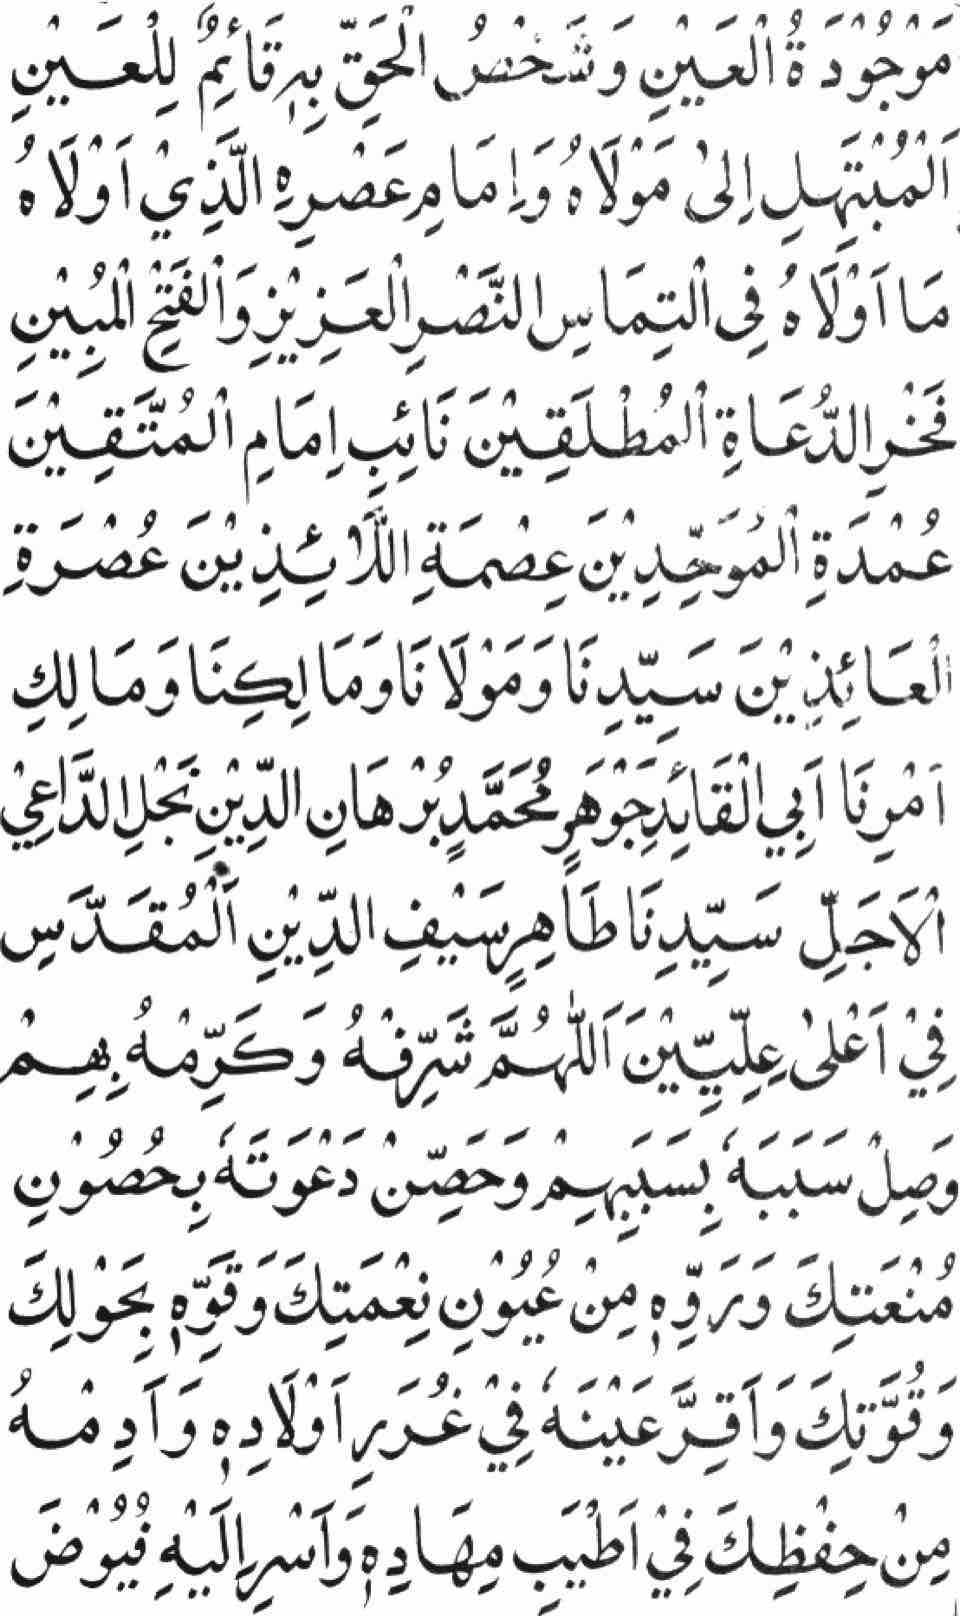 مَوْجُوْدَةُ الْعَيْنِ وَشَخْصُ الْحَقِّ بِهٖ قَائِمٌ لِلْعَيْنِ
اَلْمُبْتَهِلِ اِلىٰ مَوْلَاهُ وَاِمَامِ عَصْرِهِ الَّذِيْ اَوْلَاهُ
مَا اَوْلَاهُ فِى الْتِمَاسِ النَّصْرِ الْعَزِيْزِ وَالْفَتْحِ الْمُبِيْنِ
فَخْرِ الدُّعَاةِ الْمُطْلَقِيْنَ نَائِبِ اِمَامِ الْمُتَّقِيْنَ
عُمْدَةِ الْمُوَحِّدِيْنَ عِصْمَةِ اللَّائِذِيْنَ عُصْرَةِ
الْعَائِذِيْنَ سَيِّدِنَا وَمَوْلَانَا وَمَالِكِنَا وَمَالِكِ
اَمْرِنَا اَبِي الْقَائِدِ جَوْهَرٍ مُحَمَّدٍ بُرْهَانِ الدِّيْنِ نَجْلِ الدَّاعِيْ
الْاَجَلِّ سَيِّدِنَا طَاهِرٍ سَيْفِ الدِّيْنِ اَلْمُقَدَّسِ
فِيْ اَعْلىٰ عِلِّيِّيْنَ اَللّٰهُمَّ شَرِّفْهُ وَكَرِّمْهُ بِهِمْ
وَصِلْ سَبَبَهٗ بِسَبَبِهِمْ وَحَصِّنْ دَعْوَتَهٗ بِحُصُوْنِ
مُنْعَتِكَ وَرَوِّهٖ مِنْ عُيُوْنِ نِعْمَتِكَ وَقَوِّهٖ بِحَوْلِكَ
وَقُوَّتِكَ وَاَقِرَّ عَيْنَهٗ فِيْ غُرَرِ اَوْلَادِهٖ وَاَدِمْهُ
مِنْ حِفْظِكَ فِيْ اَطْيَبِ مِهَادِهٖ وَاَسْرِ اِلَيْهِ فُيُوْضَ